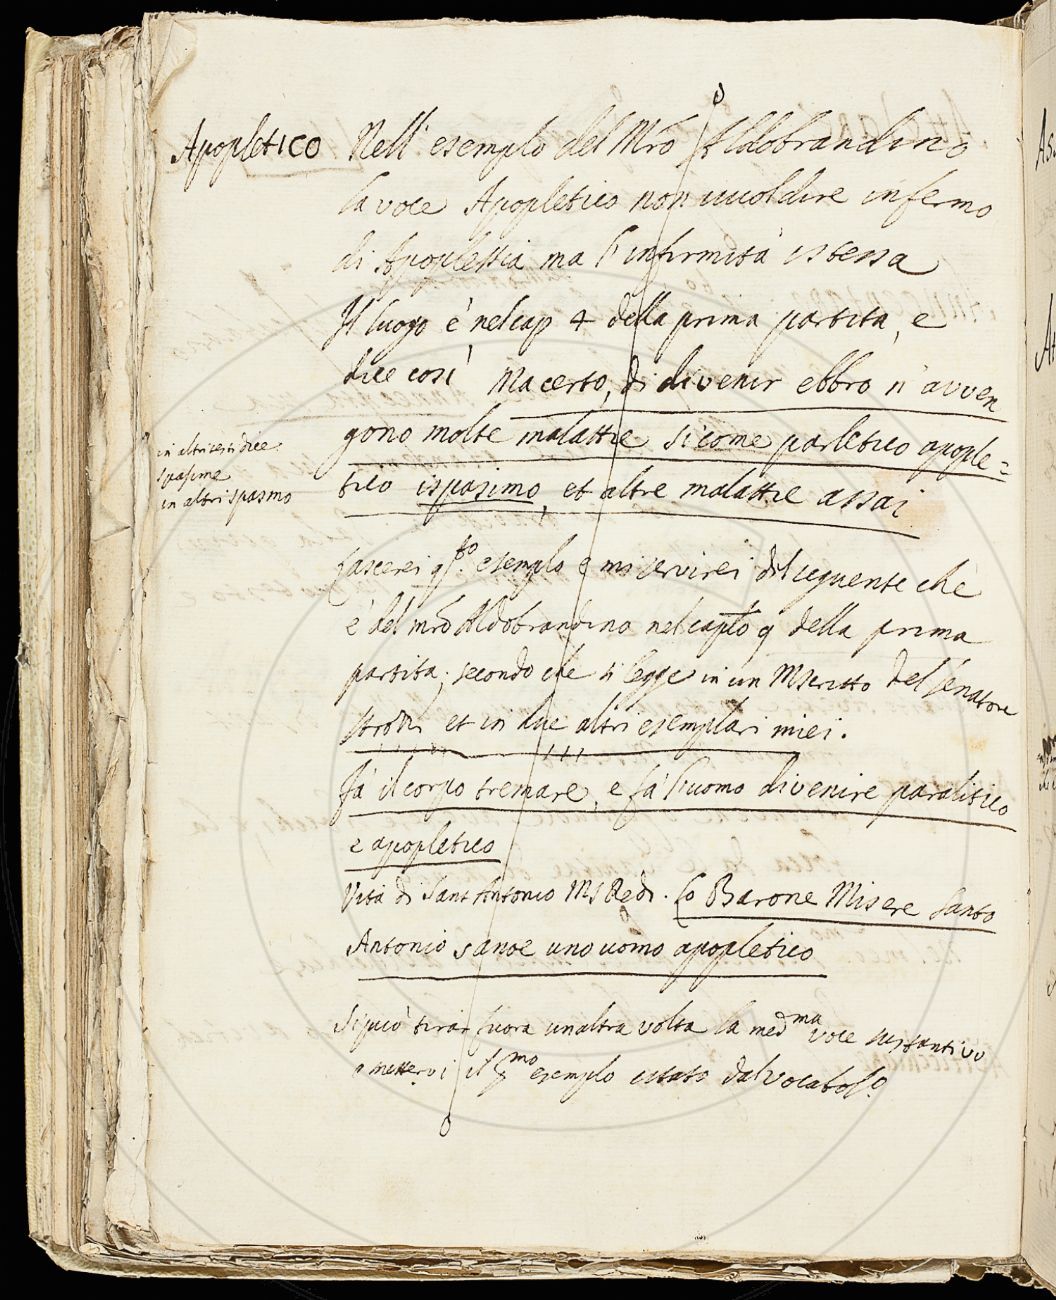 Apopletico
Nell' esemplo del Mrõ Aldobrandino
la voce Apopletico non vuoldire infermo
di Apoplessia ma l'infirmità istessa
Il luogo è nelcap 4 della prima partita, e
dice così Macerto, di divenir ebbro n'avven
gono molte malattie sicome parletico apople=
tico ispasimo, et altre malattie assai
in altri testi dice
spasime
in altri spasmo
Lascerei q.sto esemplo e mi servirei del seguente che
è del mrõ Aldobrandino nel capto 9 della prima
partita, secondo che si legge in un MScritto del senatore
Strozzi et in due altri esemplari miei.
Fà il corpo tremare, e fà l'uomo divenire paralitico
e apopletico
Vita di Sant Antonio MS Redi. Lo Barone Misere Santo
Antonio sanoe uno uomo apopletico
Si può tirar fuora unaltra volta la medma voce sustantivo
e mettervi il mo esemplo citato dal Vocabolo.